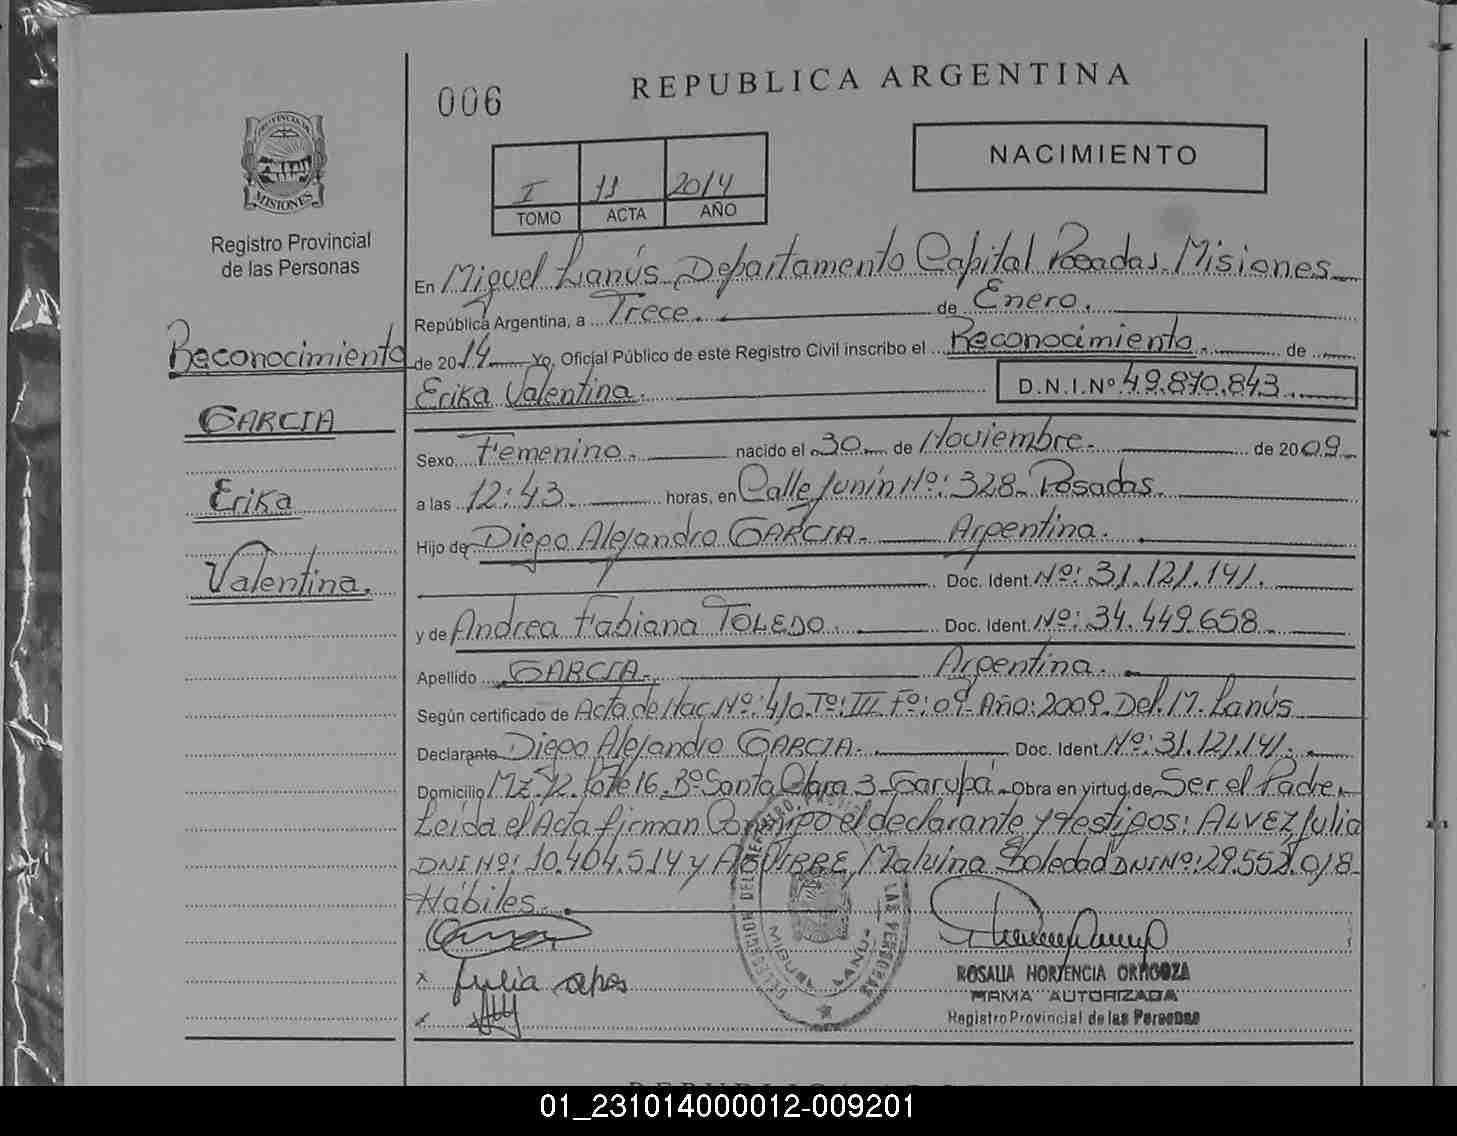 006
REPUBLICA ARGENTINA
NACIMIENTO
I 11 2014
TOMO ACTA AÑO
PROVINCIA DE MISIONES
Registro Provincial
de las Personas
Reconocimiento
GARCIA
Erika
Valentina.
En Miguel Lanús, Departamento Capital Posadas, Misiones
República Argentina, a Trece. de Enero.
de 2014 Yo, Oficial Público de este Registro Civil inscribo el Reconocimiento. de
Erika Valentina. D.N.I.Nº 49.870.843
Sexo Femenino. nacido el 30 de Noviembre. de 2009
a las 12:43 horas, en Calle Junín Nº: 328- Posadas.
Hijo de Diego Alejandro GARCIA. Argentina.
Doc. Ident. Nº: 31.121.141.
y de Andrea Fabiana TOLEDO. Doc. Ident. Nº: 34.449.658
Apellido GARCIA. Argentina.
Según certificado de Acta de Nac. Nº: 410. Tº: III Fº: 09. Año: 2009. Del. M. Lanús
Declarante Diego Alejandro GARCIA. Doc. Ident. Nº: 31.121.141.
Domicilio Mz. 12. Lote 16. Bº Santa Clara 3- Garupá Obra en virtud de Ser el Padre.
Leída el Acta firman Conmigo el declarante y testigos: ALVEZ, Julia
DNI Nº: 10.404.514 y AGUIRRE, Malvina Soledad DNI Nº: 29.552.018
Hábiles.
x Julia
ROSALIA HORTENCIA
FIRMA AUTORIZADA
Registro Provincial de las Personas
MIGUEL LANUS
REPUBLICA ARGENTINA
01_231014000012-009201